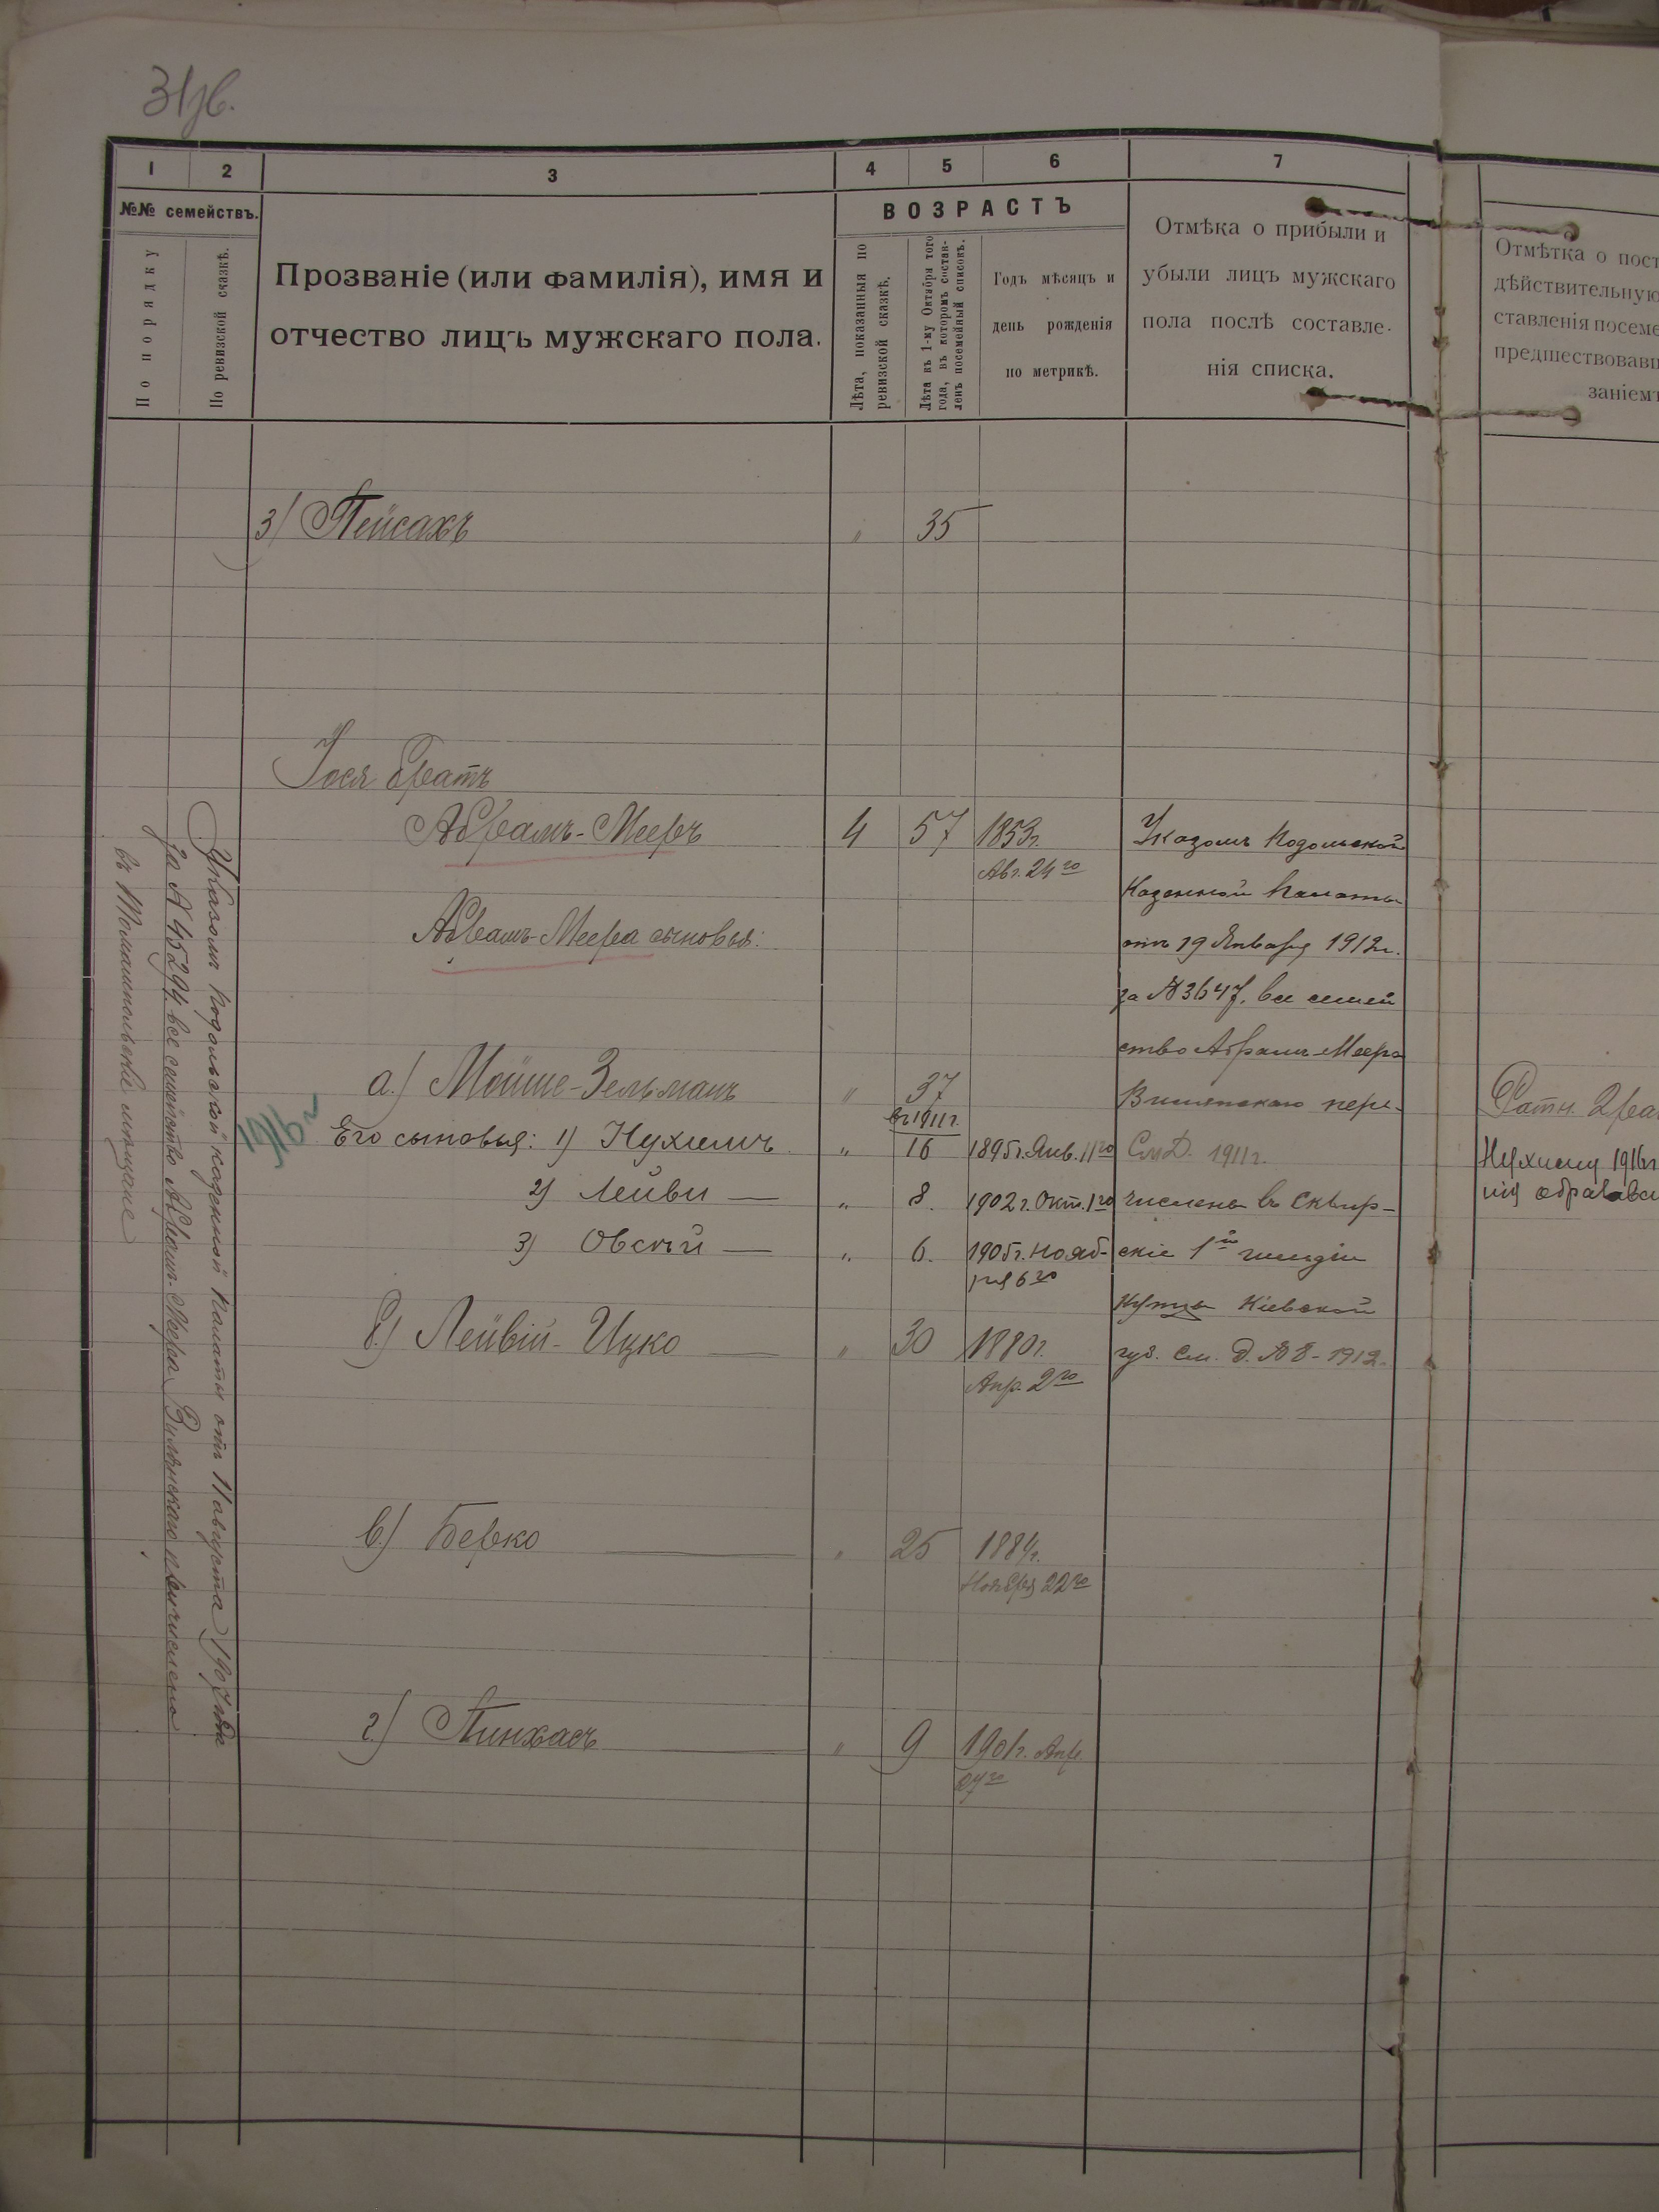 31об.
1 2 3 4 5 6 7
№№ семействъ.
По порядку
По ревизской сказкѣ.
Прозваніе (или фамилія), имя и
отчество лицъ мужскаго пола.
ВОЗРАСТЪ
Лѣта, показанныя по
ревизской сказкѣ.
Лѣта къ 1-му Октября того
года, въ которомъ состав-
ленъ посемейный списокъ.
Годъ мѣсяцъ и
день рожденія
по метрикѣ.
Отмѣка о прибыли и
убыли лицъ мужскаго
пола послѣ составле-
нія списка.
Отмѣтка о пост
дѣйствительную
ставленія посеме
предшествовавш
заніемъ
3) Пейсахъ " 35
Іося братъ
Абрамъ-Мееръ 4 57 1853г.
Авг. 24го
Абрамъ-Меера сыновья:
а.) Мойше-Зельманъ " 37
въ 1911г.
Его сыновья: 1) Нухимъ " 16 1895г. Янв. 11го
2) Лейви — " 8. 1902г. Окт. 1го
3) Овсій — " 6. 1905г. Нояб-
ря 6го
б.) Лейвій-Ицко — " 30 1880г.
Апр. 2го
в.) Берко — " 25 1884г.
Ноября 22го
г.) Пинхасъ — " 9 1901г. Апр.
27го
Указомъ Подольской
Казенной Палаты
отъ 19 Января 1912г.
за №3647, все семей
ство Абрамъ-Меера
Вилянскаго пере-
См. Д. 1911г.
числены въ Сквир-
скіе 1й гильдіи
купцы Кіевской
губ. см. д. №8-1912.
1916 г
Указомъ Подольской казенной Палаты отъ 11 августа 1907 года
за № 45294 все семейство Абрамъ-Меера Вилянскаго причислено
въ Томашпольскіе мѣщане
Ратн. 2 ра
Нухиму 1916г
нія образова